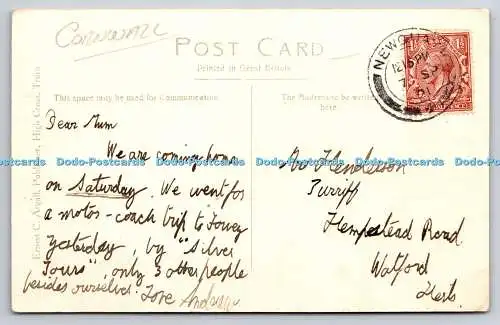 Cornwall
POST CARD
Printed in Great Britain
This space may be used for Communication.
The Address to be written here.
Ernest C. Argall, Publisher, High Cross, Truro
NEWQUAY
12 15 PM
7 SP
21
Dear Mum
We are coming home
on Saturday. We went for
a motor-coach trip to Fowey
yesterday, by "Silver
Tours", only 3 other people
besides ourselves. Love
Henderson
Turriff
Hempstead Road
Watford
Herts.
Dodo-Postcards Dodo-Postcards Dodo-Postcards Dodo-Postcards Dodo-Postcards
Dodo-Postcards Dodo-Postcards Dodo-Postcards Dodo-Postcards Dodo-Postcards